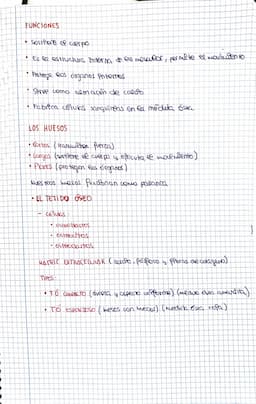 FUNCIONES
• Sostiene el cuerpo
• Es la estructura interna de los músculos, permite el movimiento
• Protege los órganos internos
• Sirve como almacén de calcio
• Fabrica células sanguíneas en la médula ósea
LOS HUESOS
• Cortos (transmiten fuerza)
• Largos (sostiene el cuerpo y ejecuta el movimiento)
• Planos (protegen los órganos)
Nuestros huesos funcionan como palanca
• EL TEJIDO ÓSEO
- Células
• osteoblastos
• osteocitos
• osteoclastos
MATRIZ EXTRACELULAR (calcio, fósforo y fibras de colágeno)
TIPOS:
• TÓ COMPACTO (densa y aspecto uniforme) (médula ósea amarilla)
• TÓ ESPONJOSO (huesos con huecos) (médula ósea roja)